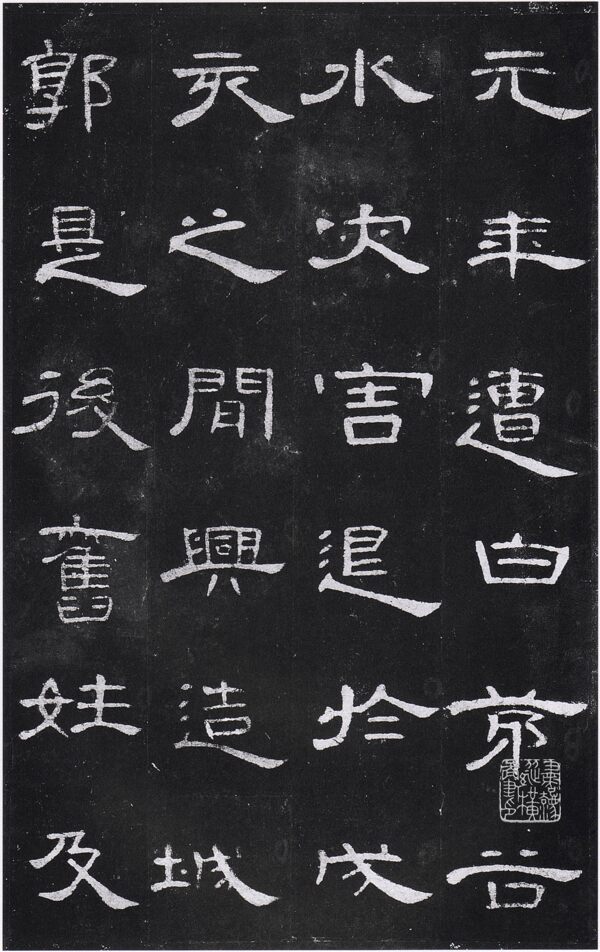 元年遭白茅谷
水災害退於戌
亥之間興造城
郭是後舊姓及